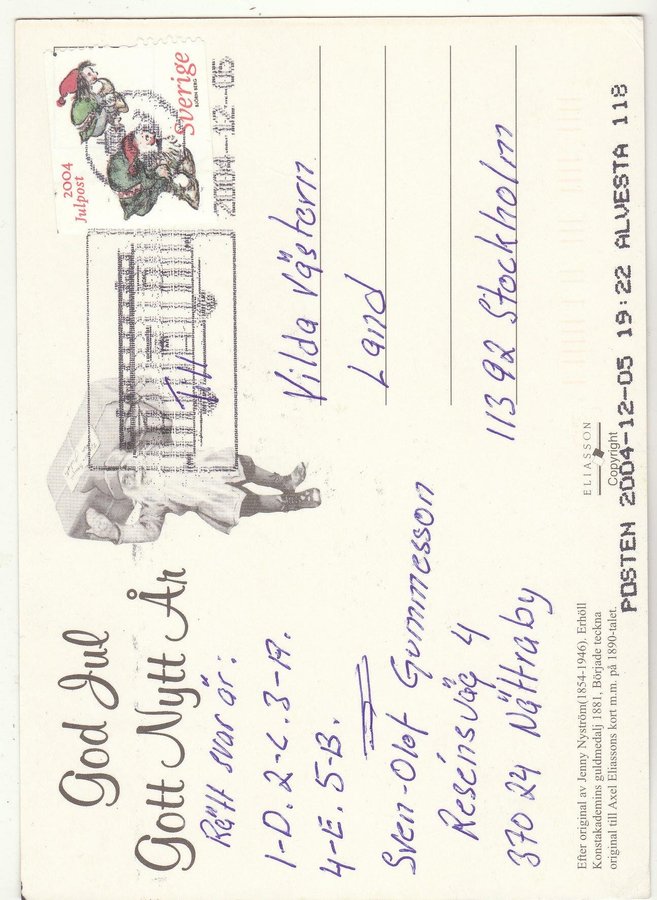 God Jul
Gott Nytt År
Rätt svar är:
1-D. 2-C. 3-A.
4-E. 5-B.
Sven-Olof Gummesson
Resénsväg 4
370 24 Nättraby
Efter original av Jenny Nyström(1854-1946). Erhöll
Konstakademins guldmedalj 1881, Började teckna
original till Axel Eliassons kort m.m. på 1890-talet.
2004
Julpost
Sverige
BJÖRN BERG
2004-12-05
Vilda Västern
Land
113 92 Stockholm
ELIASSON
Copyright
POSTEN 2004-12-05 19:22 ALVESTA 118